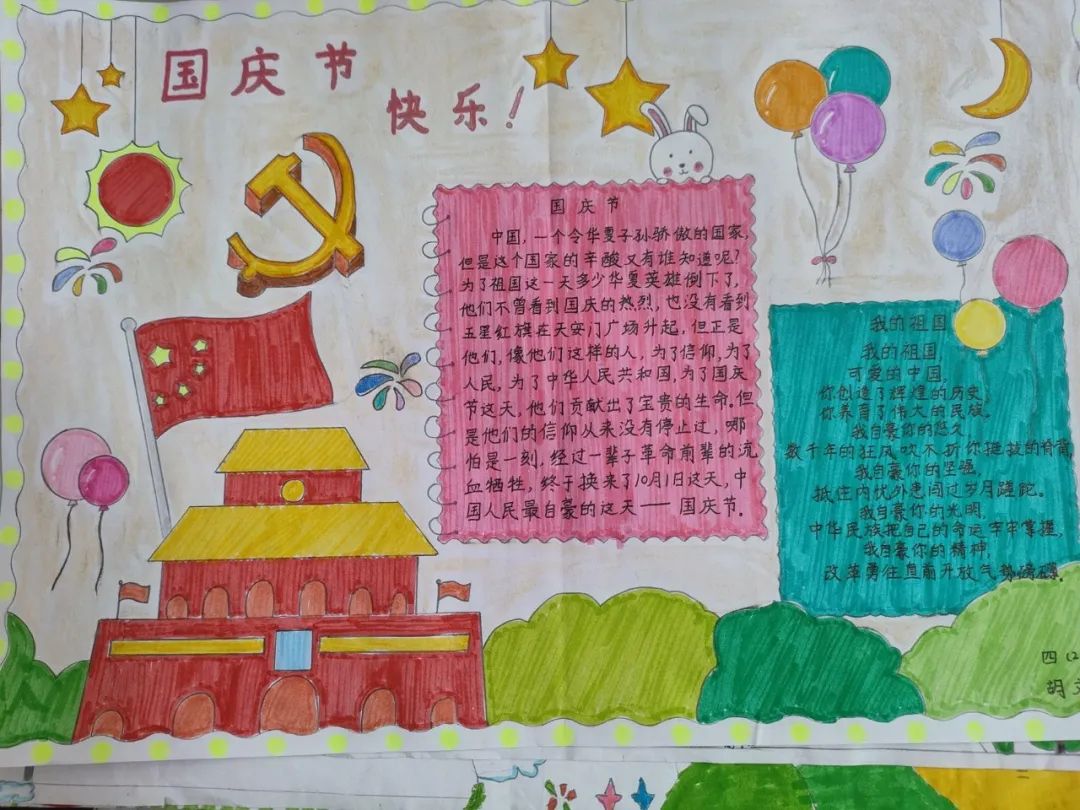 国庆节
快乐！
国庆节
中国，一个令华夏子孙骄傲的国家，
但是这个国家的辛酸又有谁知道呢？
为了祖国这一天多少华夏英雄倒下了，
他们不曾看到国庆的热烈，也没有看到
五星红旗在天安门广场升起，但正是
他们，像他们这样的人，为了信仰，为了
人民，为了中华人民共和国，为了国庆
节这天，他们贡献出了宝贵的生命。但
是他们的信仰从来没有停止过，哪
怕是一刻，经过一辈子革命前辈的流
血牺牲，终于换来了10月1日这天，中
国人民最自豪的这天——国庆节。
我的祖国
我的祖国，
可爱的中国，
你创造了辉煌的历史，
你养育了伟大的民族。
我自豪你的悠久，
数千年的狂风吹不折你挺拔的脊背，
我自豪你的坚强，
抵住内忧外患闯过岁月蹉跎。
我自豪你的光明，
中华民族把自己的命运牢牢掌握，
我自豪你的精神，
改革勇往直前开放气势磅礴。
四（2
胡